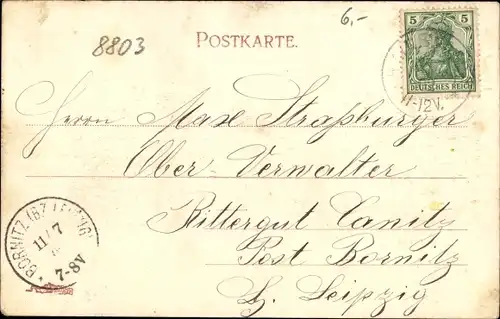 6,-
8803
POSTKARTE.
5 5
DEUTSCHES REICH
11-12V.
Herrn Max Straßburger
Ober-Verwalter
Rittergut Canitz
Post Bornitz
Bz. Leipzig
BORNITZ (BZ LEIPZIG)
11/7
7-8V